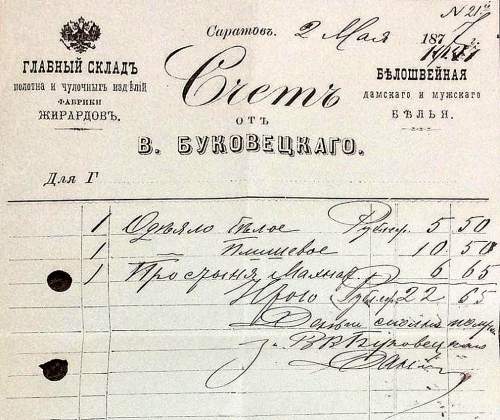 N 21
Саратовъ. 2 Мая 187
ГЛАВНЫЙ СКЛАДЪ
полотна и чулочныхъ издѣлій
ФАБРИКИ
ЖИРАРДОВЪ.
Счетъ
ОТЪ
В. БУКОВЕЦКАГО.
БѢЛОШВЕЙНАЯ
дамскаго и мужскаго
БѢЛЬЯ.
Для Г
1 Одѣяло бѣлое Рублер. 5 50
1 — плишевое 10 50
1 Простыня 6 65
Итого Рублер 22 65
Деньги сполна
за В Буковецкаго